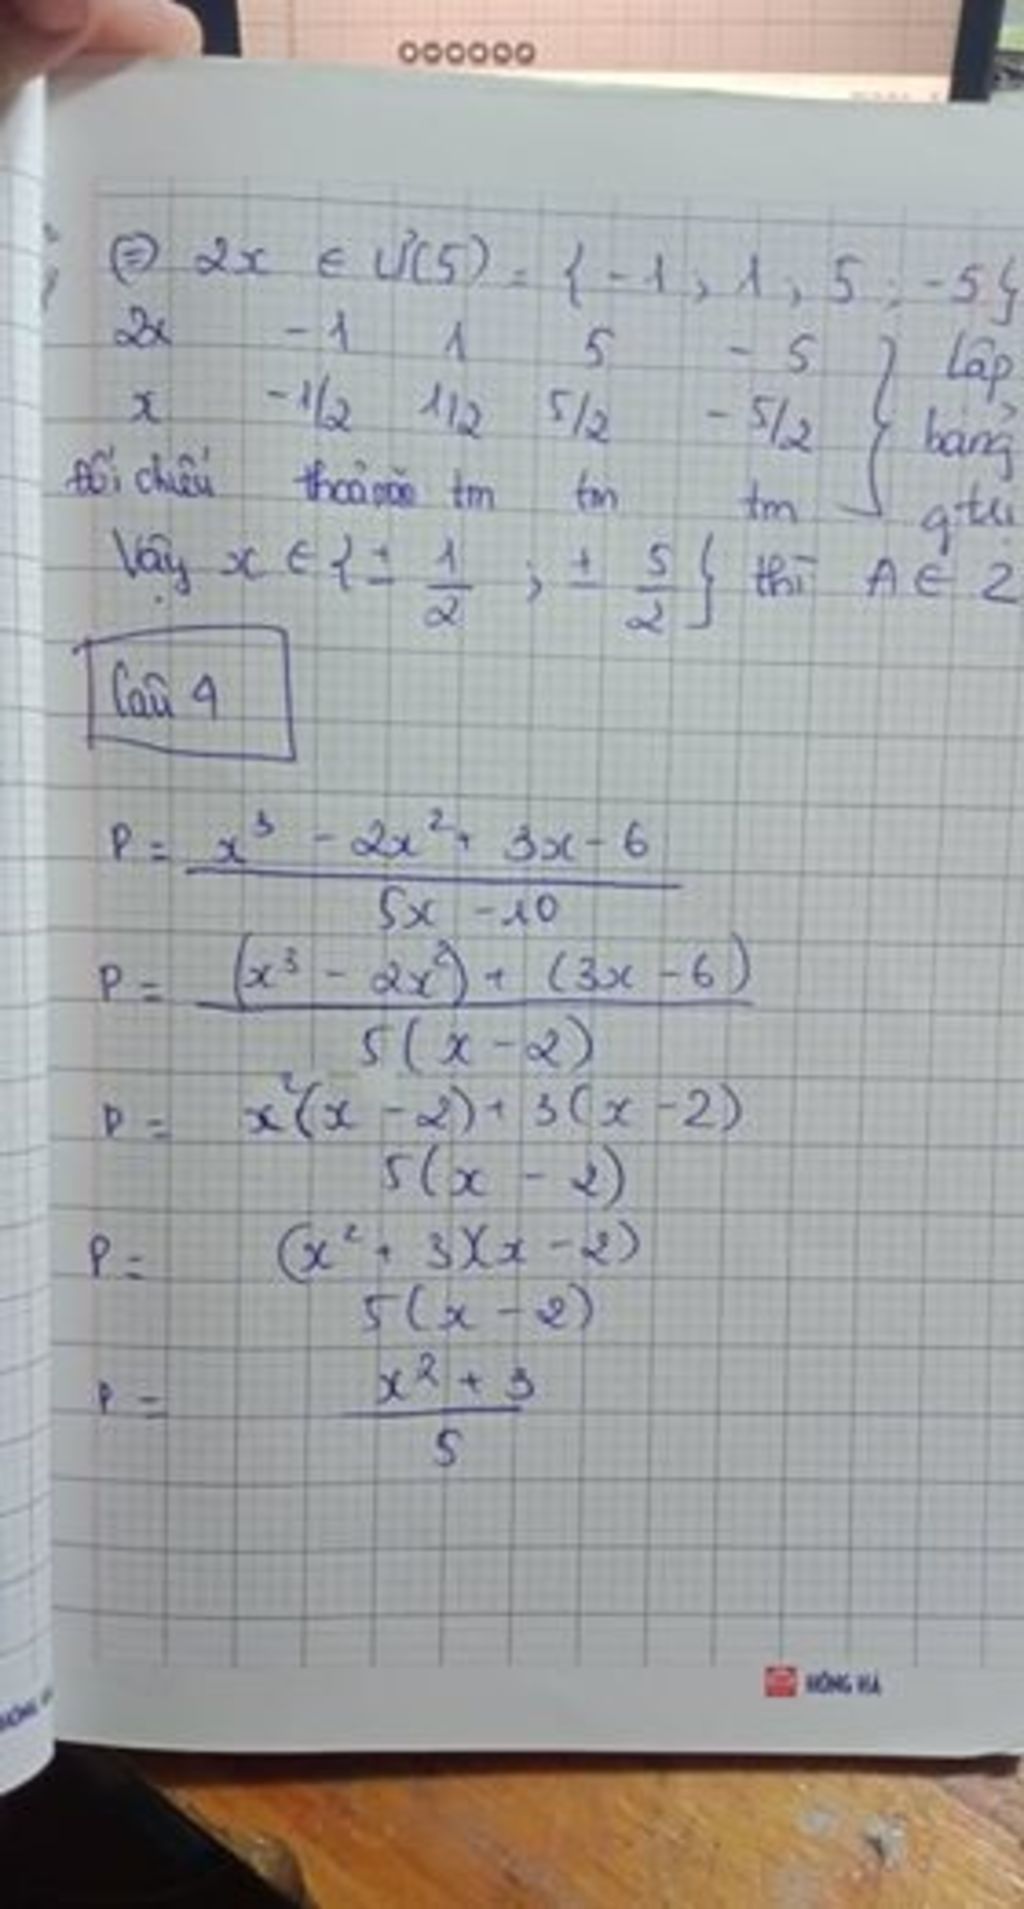 ⇔ 2x ∈ Ư(5) = {-1, 1, 5; -5}
2x -1 1 5 -5 } Lập
x -1/2 1/2 5/2 -5/2 bảng
đối chiếu thoả mãn tm tm tm g.trị
Vậy x ∈ {± 1/2 ; ± 5/2} thì A ∈ Z
Câu 4
P = x³ - 2x² + 3x - 6
5x - 10
P = (x³ - 2x²) + (3x - 6)
5(x - 2)
P = x²(x - 2) + 3(x - 2)
5(x - 2)
P = (x² + 3)(x - 2)
5(x - 2)
P = x² + 3
5
HỒNG HÀ